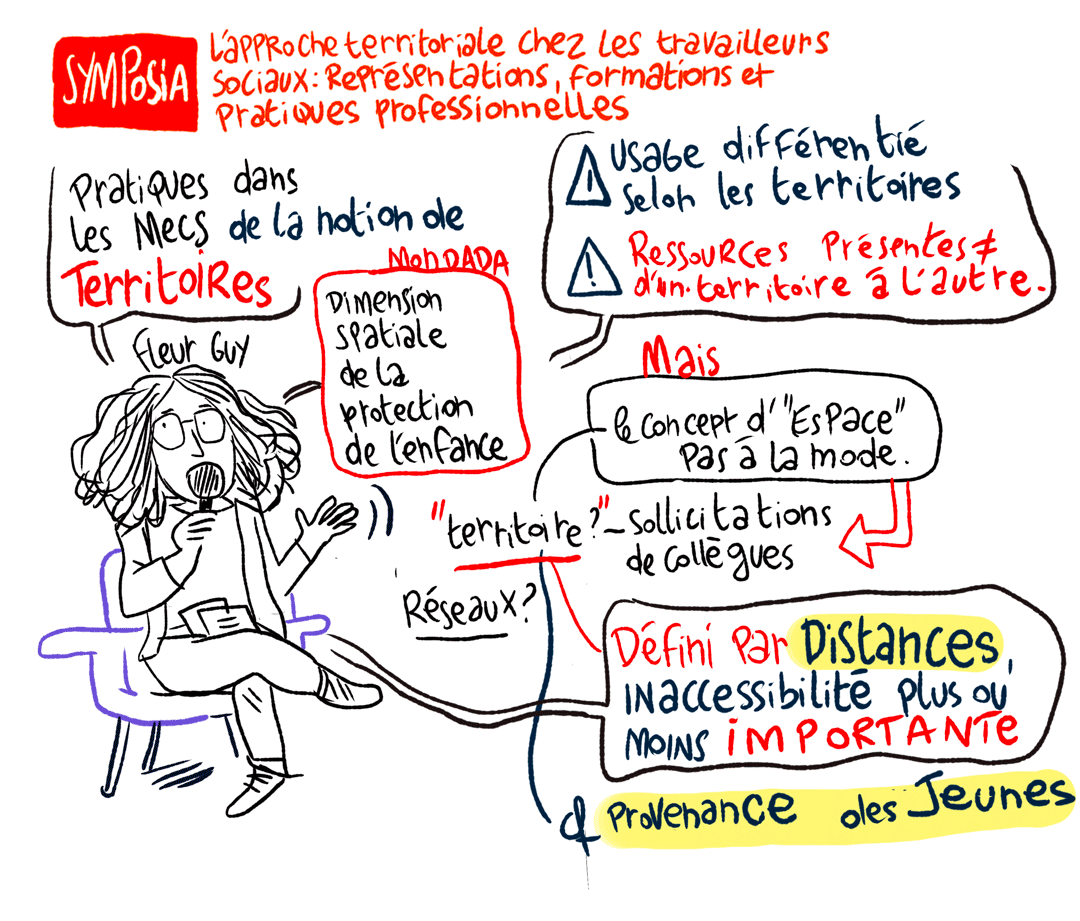 SYMPOSIA
L'approche territoriale chez les travailleurs
sociaux : Représentations, formations et
pratiques professionnelles
Pratiques dans
les Mecs de la notion de
Territoires
Fleur Guy
Mon DADA
Dimension
spatiale
de la
protection
de l'enfance
Usage différentié
selon les territoires
Ressources Présentes ≠
d'un territoire à l'autre.
Mais
le concept d'"Espace"
pas à la mode.
"territoire ?" - sollicitations
de collègues
Réseaux ?
Défini par Distances,
inaccessibilité plus ou
moins IMPORTANTE
& Provenance des Jeunes